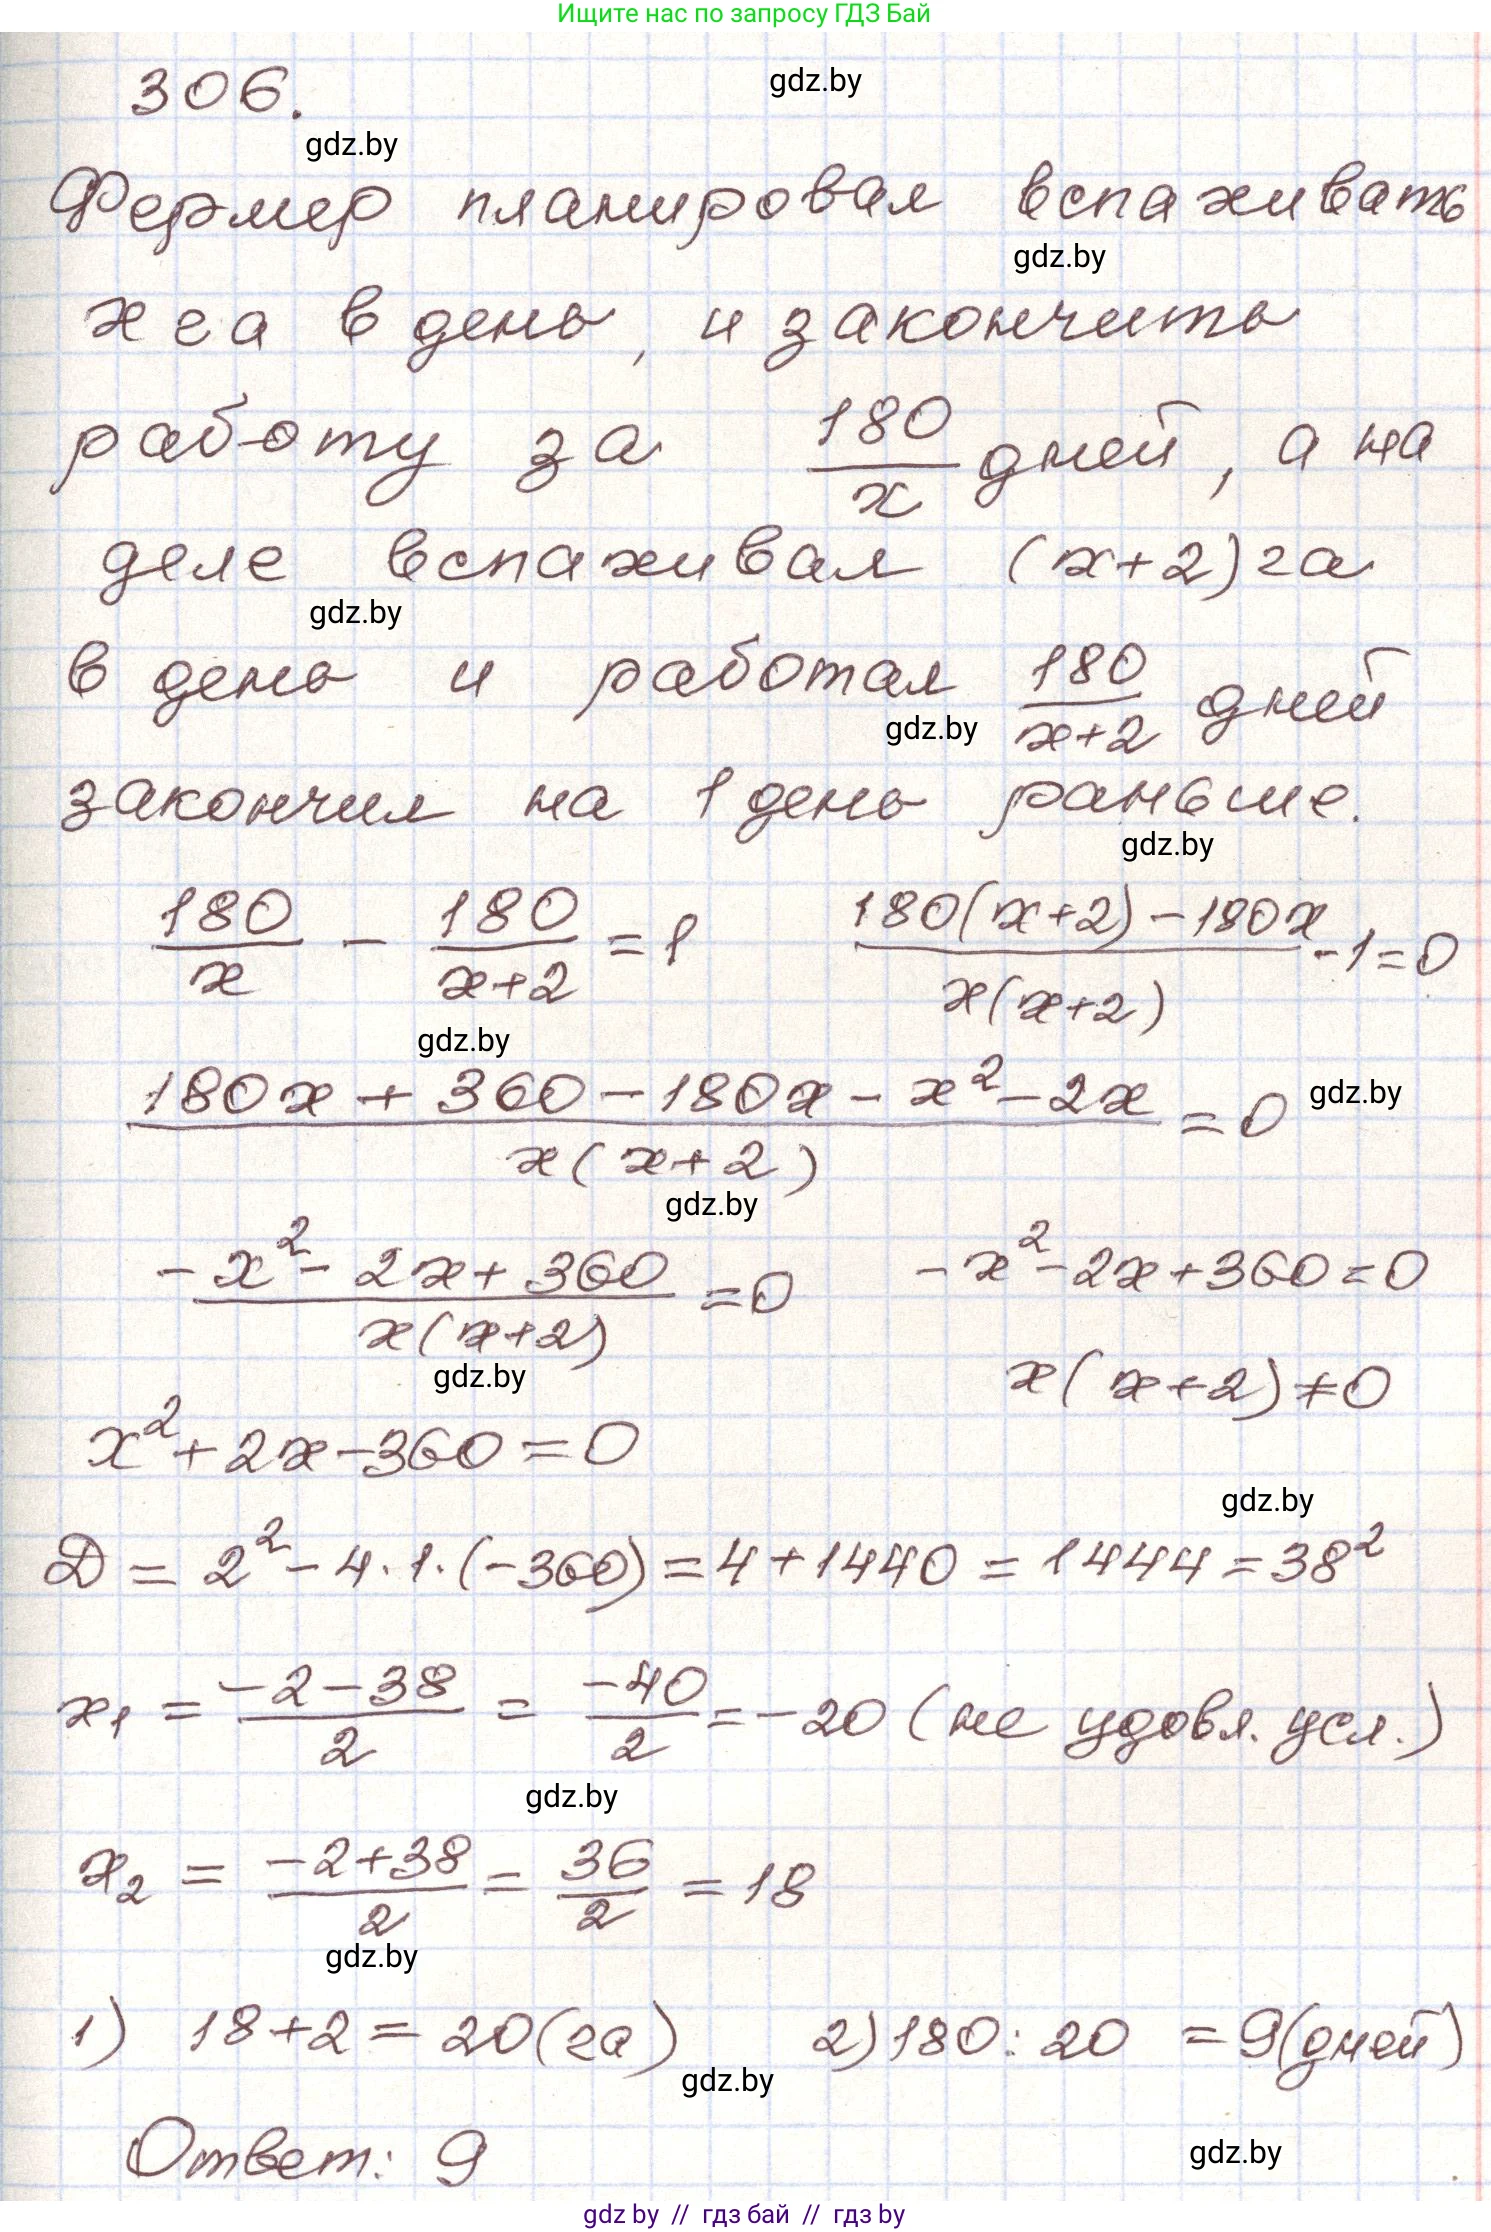 Ищите нас по запросу ГДЗ Бай
306.
gdz.by
gdz.by
Фермер планировал вспахивать
gdz.by
x га в день, и закончить
работу за 180/x дней, а на
деле вспахивал (x+2) га
gdz.by
в день и работал 180/(x+2) дней
gdz.by
закончил на 1 день раньше.
gdz.by
180/x - 180/(x+2) = 1    (180(x+2) - 180x)/(x(x+2)) - 1 = 0
gdz.by
(180x + 360 - 180x - x² - 2x)/(x(x+2)) = 0
gdz.by
gdz.by
(-x² - 2x + 360)/(x(x+2)) = 0    -x² - 2x + 360 = 0
x(x+2) ≠ 0
gdz.by
x² + 2x - 360 = 0
gdz.by
Д = 2² - 4·1·(-360) = 4 + 1440 = 1444 = 38²
x₁ = (-2-38)/2 = -40/2 = -20 (не удовл. усл.)
gdz.by
x₂ = (-2+38)/2 = 36/2 = 18
gdz.by
1) 18+2 = 20 (га)    2) 180 : 20 = 9 (дней)
gdz.by
Ответ: 9
gdz.by
gdz by // гдз бай // гдз by